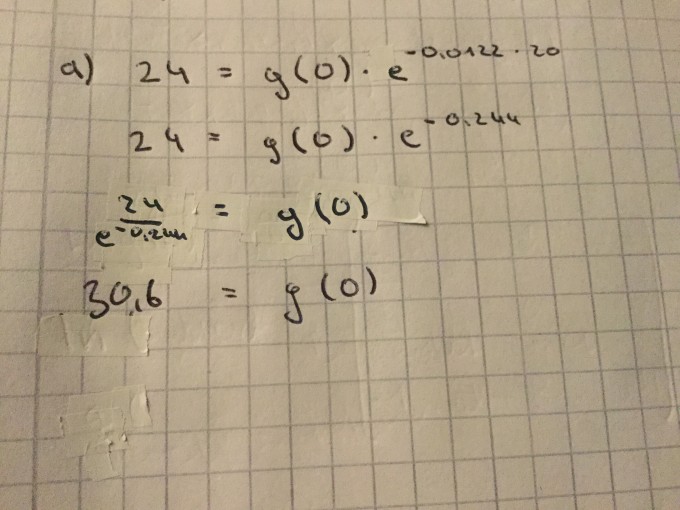 a) 24 = g(0) · e^-0,0122 · 20
24 = g(0) · e^-0,244
24/e^-0,244 = g(0)
30,6 = g(0)